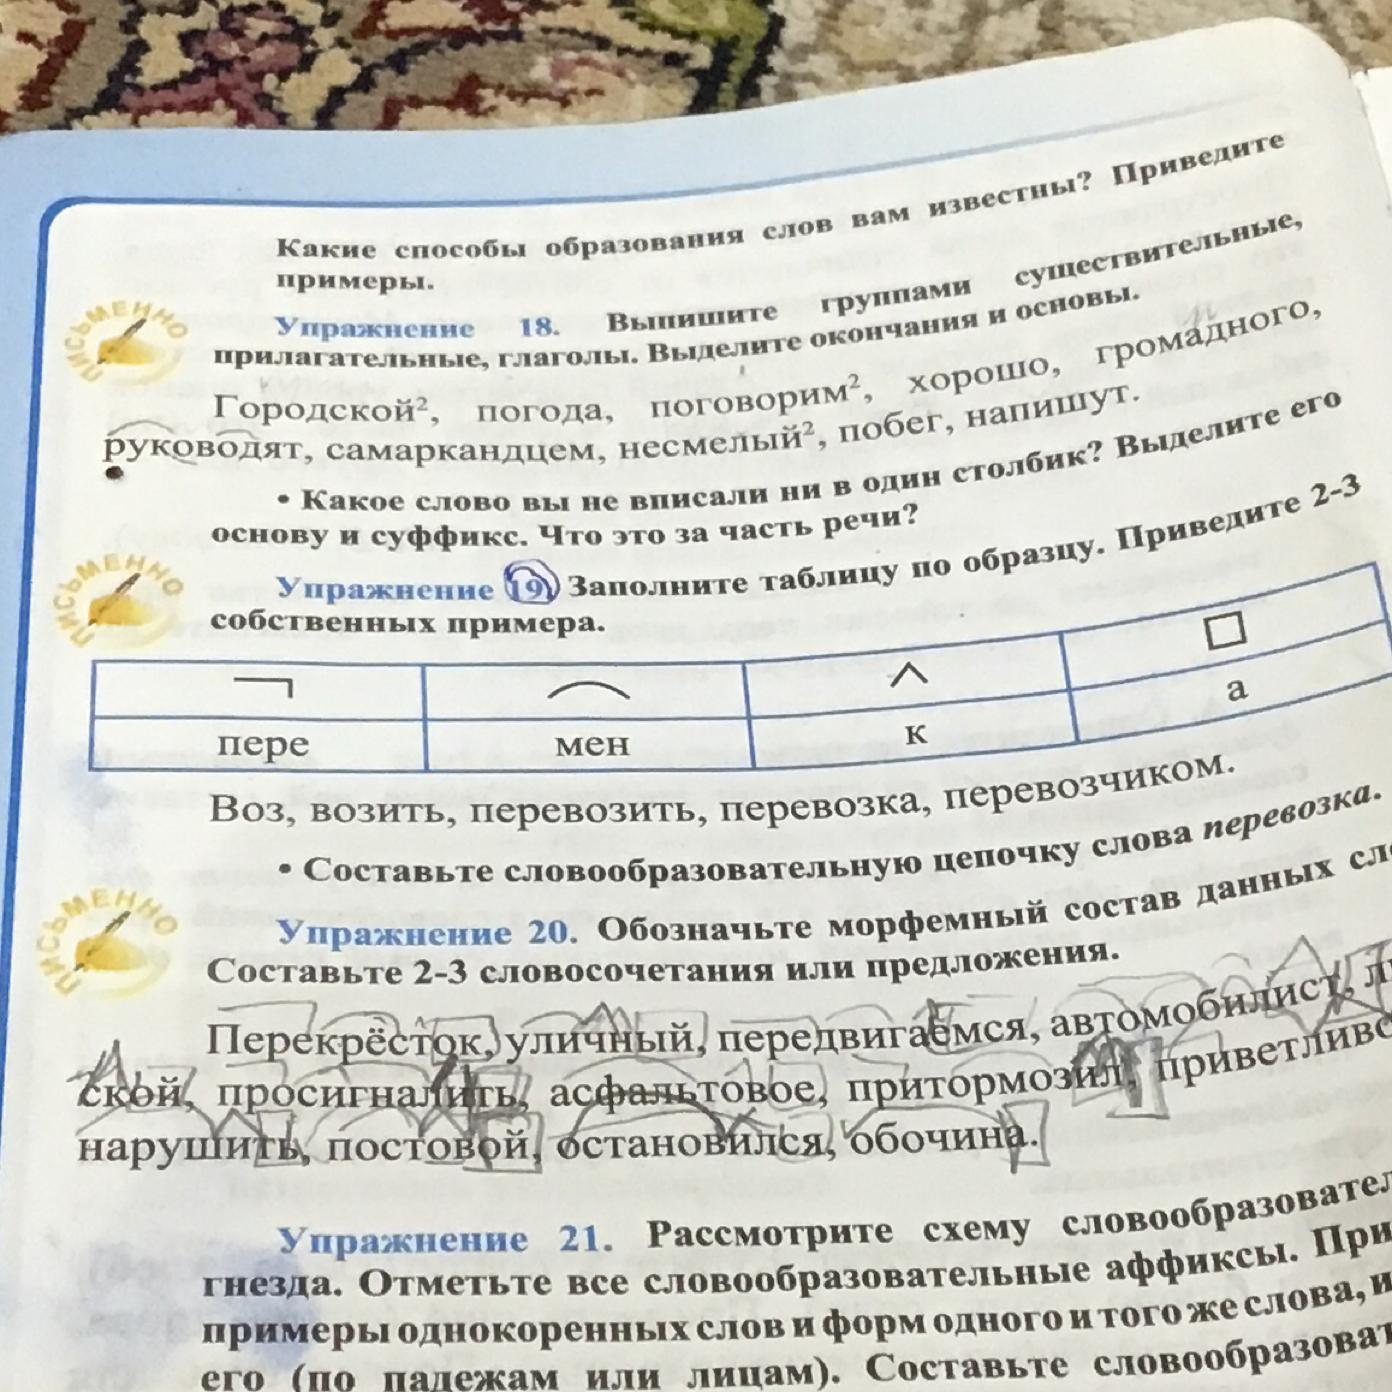 Какие способы образования слов вам известны? Приведите
примеры.
ПИСЬМЕННО
Упражнение 18. Выпишите группами существительные,
прилагательные, глаголы. Выделите окончания и основы.
Городской², погода, поговорим², хорошо, громадного,
руководят, самаркандцем, несмелый², побег, напишут.
• Какое слово вы не вписали ни в один столбик? Выделите его
основу и суффикс. Что это за часть речи?
ПИСЬМЕННО
Упражнение 19. Заполните таблицу по образцу. Приведите 2-3
собственных примера.
пере мен к а
Воз, возить, перевозить, перевозка, перевозчиком.
• Составьте словообразовательную цепочку слова перевозка.
ПИСЬМЕННО
Упражнение 20. Обозначьте морфемный состав данных
Составьте 2-3 словосочетания или предложения.
Перекрёсток, уличный, передвигаемся, автомобилист,
ской, просигналить, асфальтовое, притормозил,
нарушить, постовой, остановился, обочина.
Упражнение 21. Рассмотрите схему
гнезда. Отметьте все словообразовательные аффиксы.
примеры однокоренных слов и форм одного и того же слова, и
его (по падежам или лицам). Составьте